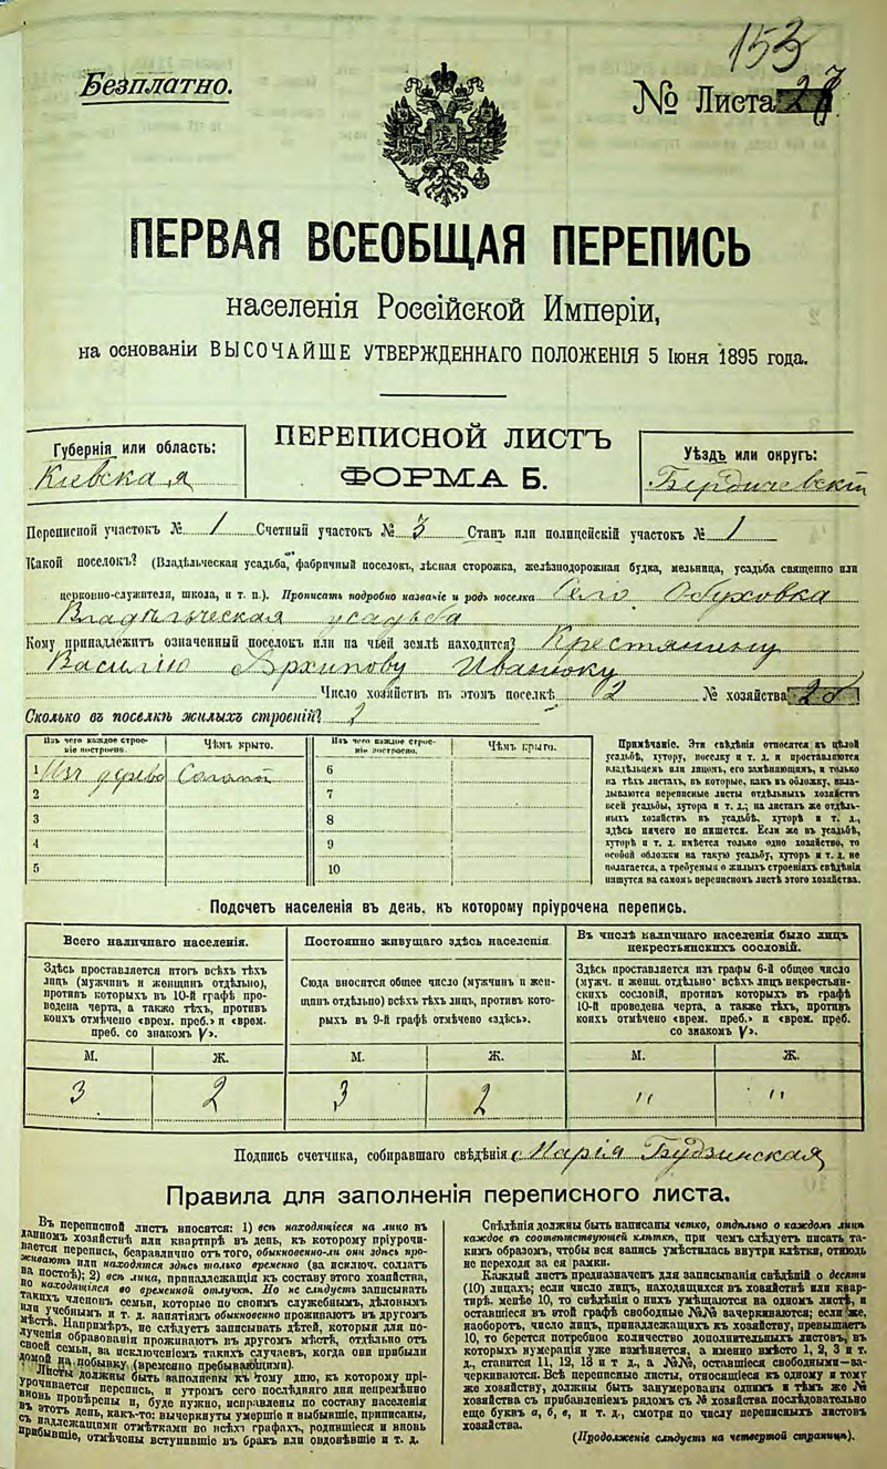 153
Безплатно.
№ Листа 27
ПЕРВАЯ ВСЕОБЩАЯ ПЕРЕПИСЬ
населенія Россійской Имперіи,
на основаніи ВЫСОЧАЙШЕ УТВЕРЖДЕННАГО ПОЛОЖЕНІЯ 5 Іюня 1895 года.
Губернія или область:
Кіевская
ПЕРЕПИСНОЙ ЛИСТЪ
ФОРМА Б.
Уѣздъ или округъ:
Бердичевскій
Переписной участокъ № 1 Счетный участокъ № 3 Станъ или полицейскій участокъ № 1
Какой поселокъ? (Владѣльческая усадьба, фабричный поселокъ, лѣсная сторожка, желѣзнодорожная будка, мельница, усадьба священно или
церковно-служителя, школа, и т. п.). Прописать подробно названіе и родъ поселка Село Обуховка
Владѣльческая усадьба
Кому принадлежитъ означенный поселокъ или на чьей землѣ находится? Крестянину
Василію Архипову Иванюку
Число хозяйствъ въ этомъ поселкѣ 2 № хозяйства
Сколько въ поселкѣ жилыхъ строеній? 2
Изъ чего каждое строеніе построено.
Чѣмъ крыто.
Изъ чего каждое строеніе построено.
Чѣмъ крыто.
1 Изъ дерева Соломой
2
3
4
5
6
7
8
9
10
Примѣчаніе. Эти свѣдѣнія относятся къ цѣлой
усадьбѣ, хутору, поселку и т. д. и проставляются
владѣльцемъ или лицомъ, его замѣняющимъ, и только
на тѣхъ листахъ, въ которые, какъ въ обложку, вкла-
дываются переписные листы отдѣльныхъ хозяйствъ
всей усадьбы, хутора и т. д.; на листахъ же отдѣль-
ныхъ хозяйствъ въ усадьбѣ, хуторѣ и т. д.,
здѣсь ничего не пишется. Если же въ усадьбѣ,
хуторѣ и т. д. имѣется только одно хозяйство, то
особой обложки на такую усадьбу, хуторъ и т. д. не
полагается, а требуемыя о жилыхъ строеніяхъ свѣдѣнія
пишутся на самомъ переписномъ листѣ этого хозяйства.
Подсчетъ населенія въ день, къ которому пріурочена перепись.
Всего наличнаго населенія.
Здѣсь проставляется итогъ всѣхъ тѣхъ
лицъ (мужчинъ и женщинъ отдѣльно),
противъ которыхъ въ 10-й графѣ про-
ведена черта, а также тѣхъ, противъ
коихъ отмѣчено «врем. преб.» и «врем.
преб. со знакомъ V».
Постоянно живущаго здѣсь населенія
Сюда вносится общее число (мужчинъ и жен-
щинъ отдѣльно) всѣхъ тѣхъ лицъ, противъ кото-
рыхъ въ 9-й графѣ отмѣчено «здѣсь».
Въ числѣ наличнаго населенія было лицъ
некрестьянскихъ сословій.
Здѣсь проставляется изъ графы 6-й общее число
(мужч. и женщ. отдѣльно) всѣхъ лицъ некрестьян-
скихъ сословій, противъ которыхъ въ графѣ
10-й проведена черта, а также тѣхъ, противъ
коихъ отмѣчено «врем. преб.» и «врем. преб.
со знакомъ V».
М. Ж. М. Ж. М. Ж.
3 2 3 2 " "
Подпись счетчика, собиравшаго свѣдѣнія Марія Будзинская
Правила для заполненія переписного листа.
Въ переписной листъ вносятся: 1) всѣ находящіеся на лицо въ
данномъ хозяйствѣ или квартирѣ въ день, къ которому пріурочи-
вается перепись, безразлично отъ того, обыкновенно-ли они здѣсь про-
живаютъ или находятся здѣсь только временно (за исключ. солдатъ
на постоѣ); 2) всѣ лица, принадлежащія къ составу этого хозяйства,
но находящіяся во временной отлучкѣ. Но не слѣдуетъ записывать
такихъ членовъ семьи, которые по своимъ служебнымъ, дѣловымъ
или учебнымъ и т. д. занятіямъ обыкновенно проживаютъ въ другомъ
мѣстѣ. Напримѣръ, не слѣдуетъ записывать дѣтей, которыя для по-
лученія образованія проживаютъ въ другомъ мѣстѣ, отдѣльно отъ
своей семьи, за исключеніемъ такихъ случаевъ, когда они прибыли
домой на побывку (временно пребывающими).
Листы должны быть заполнены къ тому дню, къ которому прі-
урочивается перепись, и утромъ сего послѣдняго дня непремѣнно
вновь провѣрены и, буде нужно, исправлены по составу населенія
въ этотъ день, какъ-то: вычеркнуты умершіе и выбывшіе, приписаны,
съ надлежащими отмѣтками во всѣхъ графахъ, родившіеся и вновь
прибывшіе, отмѣчены вступившіе въ бракъ или овдовѣвшіе и т. д.
Свѣдѣнія должны быть написаны четко, отдѣльно о каждомъ лицѣ
каждое въ соотвѣтствующей клѣткѣ, при чемъ слѣдуетъ писать та-
кимъ образомъ, чтобы вся запись умѣстилась внутри клѣтки, отнюдь
не переходя за ея рамки.
Каждый листъ предназначенъ для записыванія свѣдѣній о десяти
(10) лицахъ; если число лицъ, находящихся въ хозяйствѣ или квар-
тирѣ, менѣе 10, то свѣдѣнія о нихъ умѣщаются на одномъ листѣ, и
оставшіеся въ этой графѣ свободные №№ зачеркиваются; если же,
наоборотъ, число лицъ, принадлежащихъ къ хозяйству, превышаетъ
10, то берется потребное количество дополнительныхъ листовъ, въ
которыхъ нумерація уже измѣняется, а именно вмѣсто 1, 2, 3 и т.
д., ставится 11, 12, 13 и т. д., а №№, оставшіеся свободными—за-
черкиваются. Всѣ переписные листы, относящіеся къ одному и тому
же хозяйству, должны быть занумерованы однимъ и тѣмъ же №
хозяйства съ прибавленіемъ рядомъ съ № хозяйства послѣдовательно
еще буквъ а, б, в, и т. д., смотря по числу переписныхъ листовъ
хозяйства.
(Продолженіе слѣдуетъ на четвертой страницѣ).